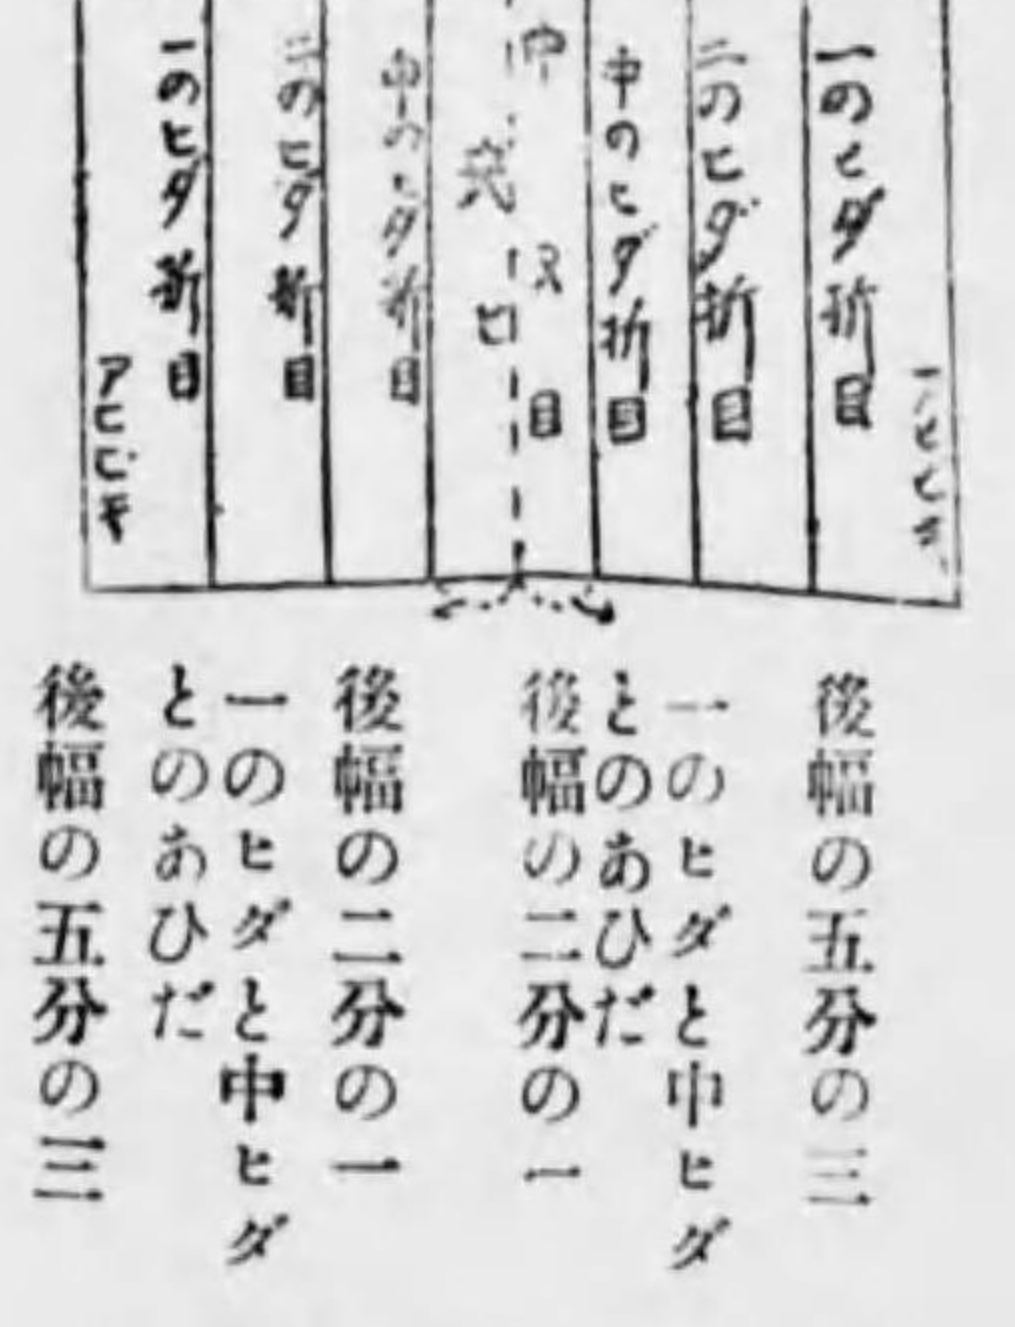 一のヒダ折目
二のヒダ折目
中のヒダ折目
目
中のヒダ折目
二のヒダ折目
一のヒダ折目
アヒビキ
後幅の五分の三
一のヒダと中ヒダ
とのあひだ
後幅の二分の一
後幅の二分の一
一のヒダと中ヒダ
とのあひだ
後幅の五分の三